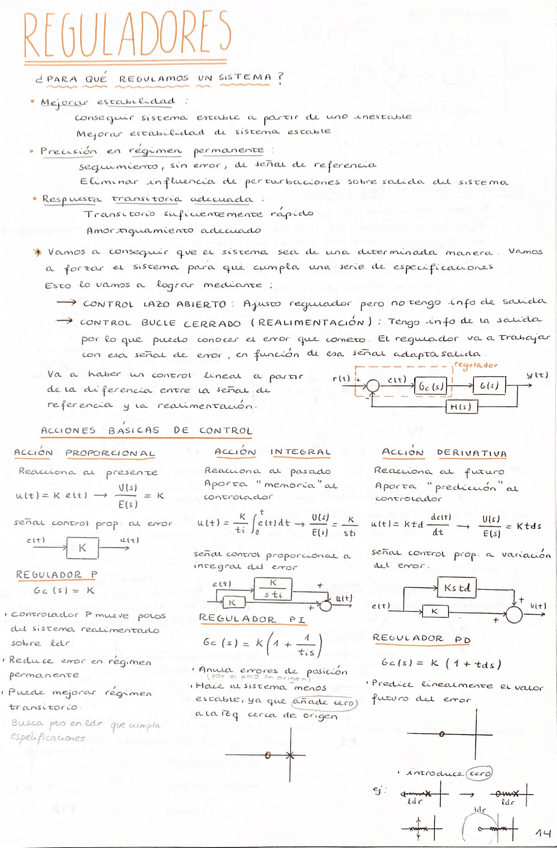 REGULADORES
¿PARA QUÉ REGULAMOS UN SISTEMA?
• Mejorar estabilidad:
Conseguir sistema estable a partir de uno inestable
Mejorar estabilidad de sistema estable
• Precisión en régimen permanente:
Seguimiento, sin error, de señal de referencia
Eliminar influencia de perturbaciones sobre salida del sistema
• Respuesta transitoria adecuada:
Transitorio suficientemente rápido
Amortiguamiento adecuado
* Vamos a conseguir que el sistema sea de una determinada manera. Vamos
a forzar el sistema para que cumpla una serie de especificaciones
Esto lo vamos a lograr mediante:
→ CONTROL LAZO ABIERTO: Ajusto regulador pero no tengo info de salida
→ CONTROL BUCLE CERRADO (REALIMENTACIÓN): Tengo info de la salida
por lo que puedo conocer el error que cometo. El regulador va a trabajar
con esa señal de error, en función de esa señal adapta salida.
Va a haber un control lineal a partir
de la diferencia entre la señal de
referencia y la realimentación.
regulador
r(t) + - e(t) Gc(s) G(s) y(t)
H(s)
ACCIONES BÁSICAS DE CONTROL
ACCIÓN PROPORCIONAL
Reacciona al presente
u(t) = K e(t) → U(s)/E(s) = K
señal control prop. al error
e(t) K u(t)
REGULADOR P
Gc(s) = K
• Controlador P mueve polos
del sistema realimentado
sobre ldr.
• Reduce error en régimen
permanente
• Puede mejorar régimen
transitorio.
Busca pto en ldr que cumpla
especificaciones
ACCIÓN INTEGRAL
Reacciona al pasado
Aporta "memoria" al
controlador
u(t) = K/ti ∫₀ᵗ e(t)dt → U(s)/E(s) = K/sti
señal control proporcional a
integral del error
e(t) K/sti + u(t)
K +
REGULADOR PI
Gc(s) = K(1 + 1/tis)
• Anula errores de posición
(por el polo en origen)
• Hace al sistema menos
estable, ya que añade cero
a la req cerca de origen
ACCIÓN DERIVATIVA
Reacciona al futuro
Aporta "predicción" al
controlador
u(t) = Ktd de(t)/dt → U(s)/E(s) = Ktds
señal control prop. a variación
del error.
Kstd +
e(t) K + u(t)
REGULADOR PD
Gc(s) = K(1 + tds)
• Predice linealmente el valor
futuro del error
• introduce cero
ej:
ldr → ldr
ldr
14